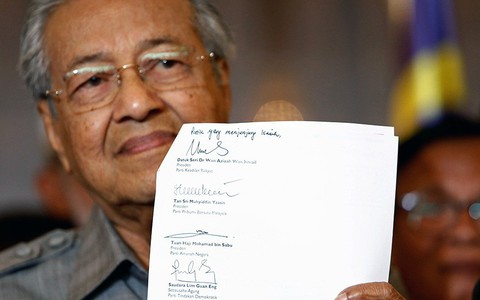 Datuk Seri Dr Wan Azizah Wan Ismail
Presiden
Parti Keadilan Rakyat
Tan Sri Muhyiddin Yassin
Presiden
Parti Pribumi Bersatu Malaysia
Tuan Haji Mohamad bin Sabu
Presiden
Parti Amanah Negara
Saudara Lim Guan Eng
Setiausaha Agung
Parti Tindakan Demokratik